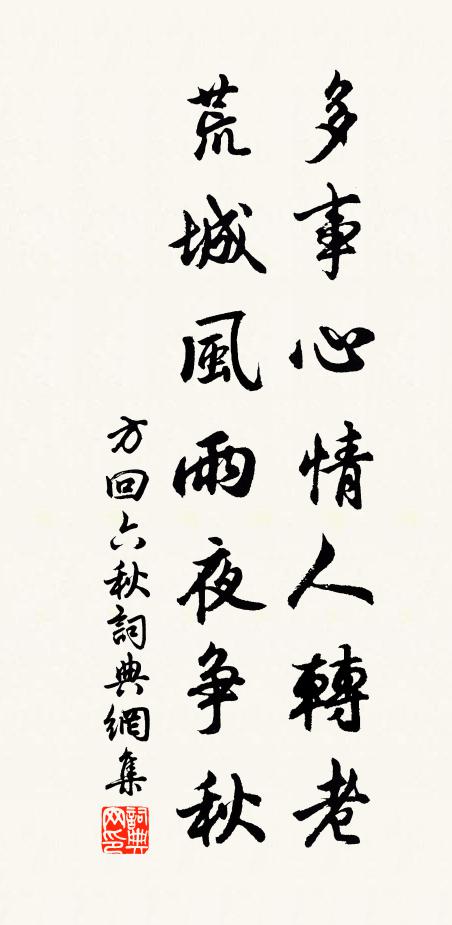 多事心情人轉老
荒城風雨夜爭秋
方回六秋詞典網集
詞典网印